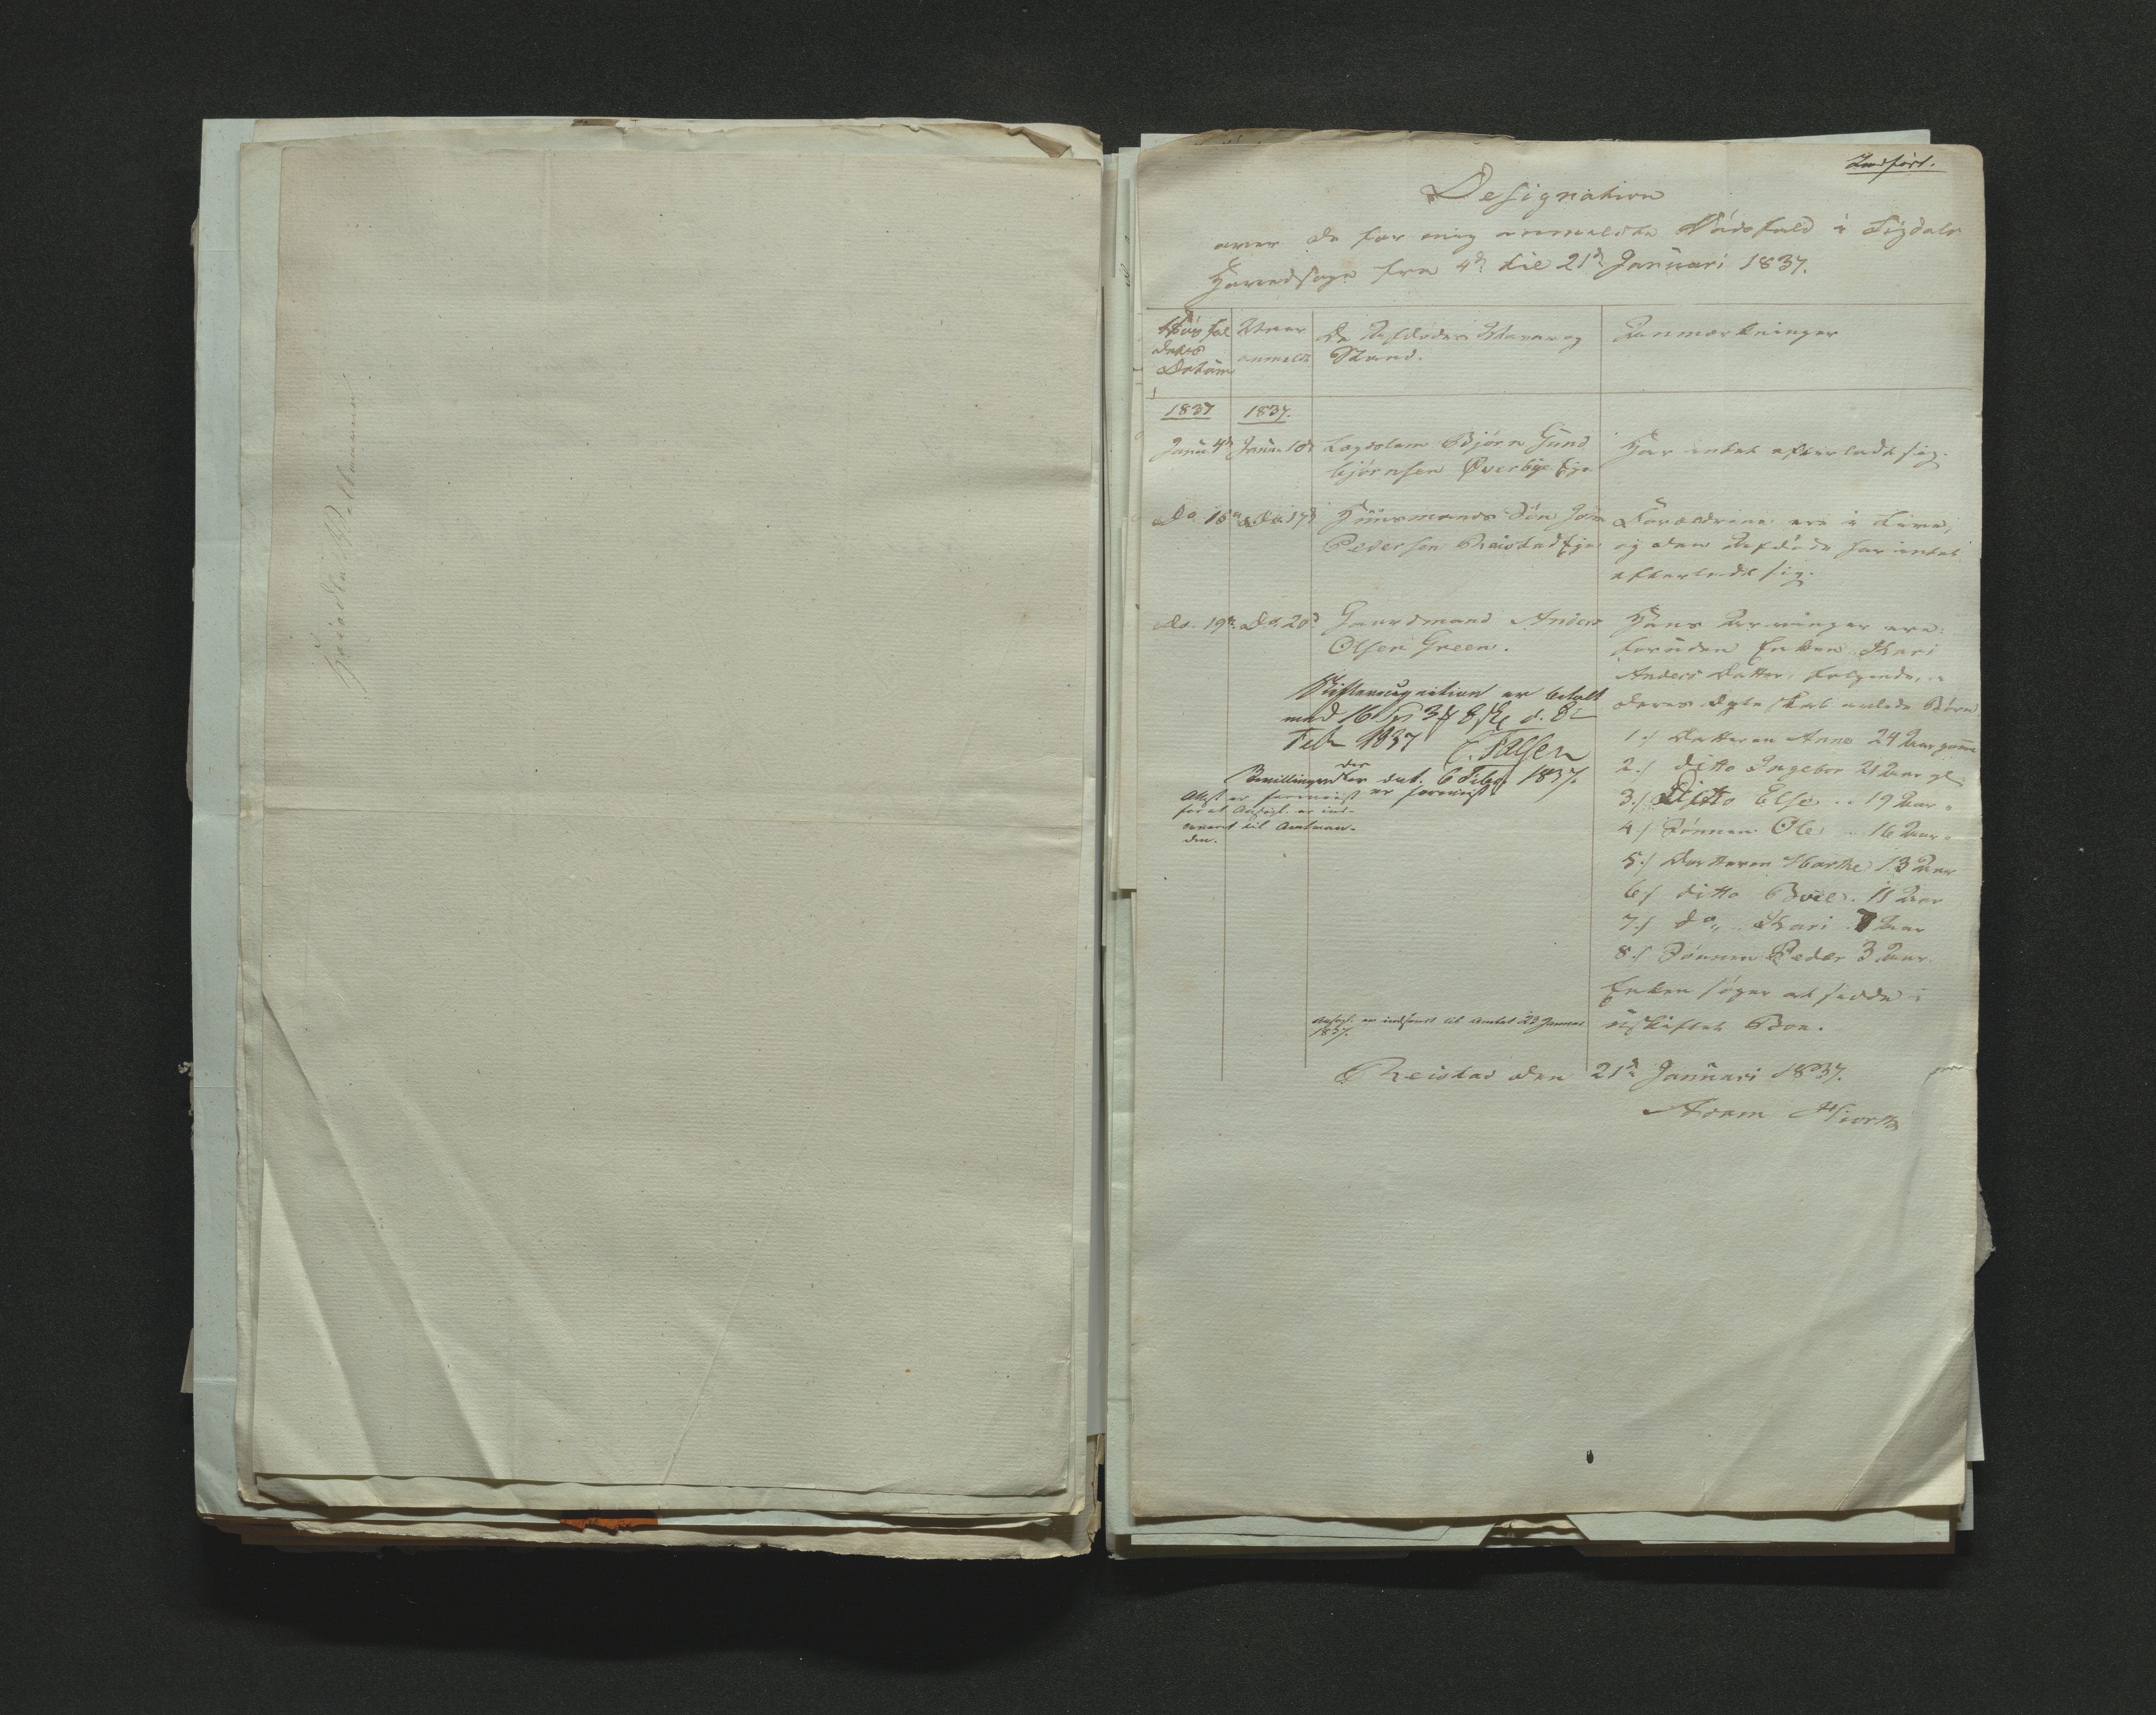 Indført.
Designation
over de for mig anmeldte Dødsfald i Sigdals
Hovedsogn fra 4de til 21de Januari 1837.
Dødsfal
dets
Datum
Naar
anmeldt
De Afdødes Navne og
Stand.
Anmærkninger
1837
1837.
Janu 4de
Janu 10de
Lægdslem Bjørn Gund
bjørnsen Øverbye Eje
Har intet efterladt sig.
Do 15de
Do 17de
Huusmands Søn
Pedersen Reistad Eje
Forældrene ere i Live,
og den Afdøde har intet
efterladt sig.
Do. 19de
Do 20de
Gaardmand Anders
Olsen Green.
Hans Arvinger ere:
foruden Enken Kari
Anders Datter, følgende, i
deres Ægteskab avlede Børn
1./ Datteren Anne 24 Aar gaml
2./ ditto Ingebor 21 Aar gl
3./ Ditto Else .. 19 Aar "
4./ Sønnen Ole .. 16 Aar "
5./ Datteren Marthe 13 Aar
6./ ditto Boel. 11 Aar
7./ do „ Kari 7 Aar
8./ Sønnen Peder 3 Aar.
Enken søger at sidde i
uskiftet Boe.
Skifterecognition er betalt
med 16 Sp 3 8 d. 8
Feb 1837 C. Falsen
Bevillingen der dat. 6 Febr. 1837.
er foreviist
Attest er foreviist
for at Ansøgn. er ind-
leveret til Amtman-
den.
Ansøgn. er indsendt til Amtet 23 Januar
1837.
Reistad den 21de Januari 1837.
Adam Hiorth